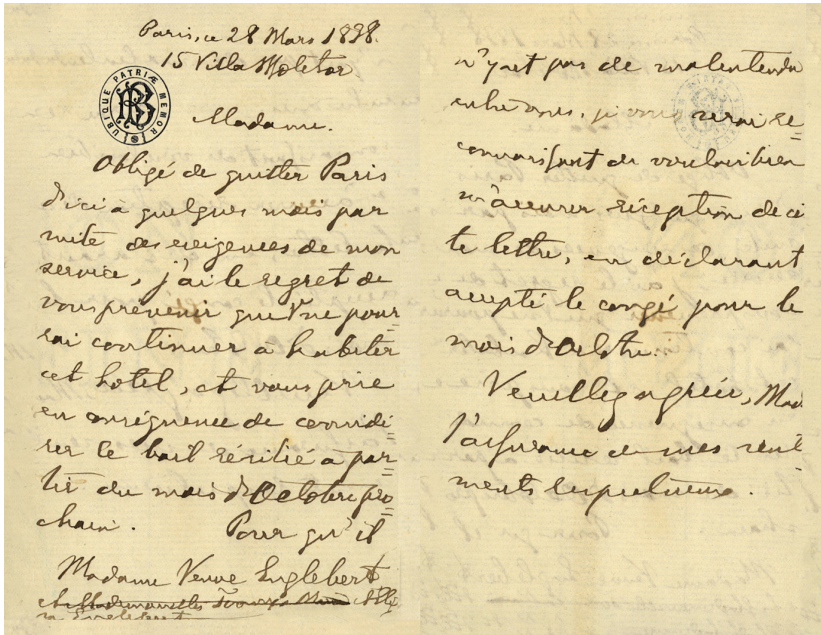 Paris, ce 28 Mars 1898.
15 Villa Molitor
UBIQUE PATRIÆ MEMOR
Madame.
Obligé de quitter Paris
d'ici à quelques mois par
suite des exigences de mon
service, j'ai le regret de
vous prévenir que ne pour=
rai continuer à habiter
cet hotel, et vous prie
en conséquence de considé=
rer le bail résilié a par=
tir du mois d'Octobre pro=
chain. Pour qu'il
Madame Veuve Englebert
et Mademoiselle
Englebert
n'y ait pas de malentendu
entre nous, je vous serai re=
connaissant de vouloir bien
m'accuser réception de ce
te lettre, en déclarant
accepté le congé pour le
mois d'Octobre.
Veuillez agréer, Mad
l'assurance de mes senti
ments respectueux.